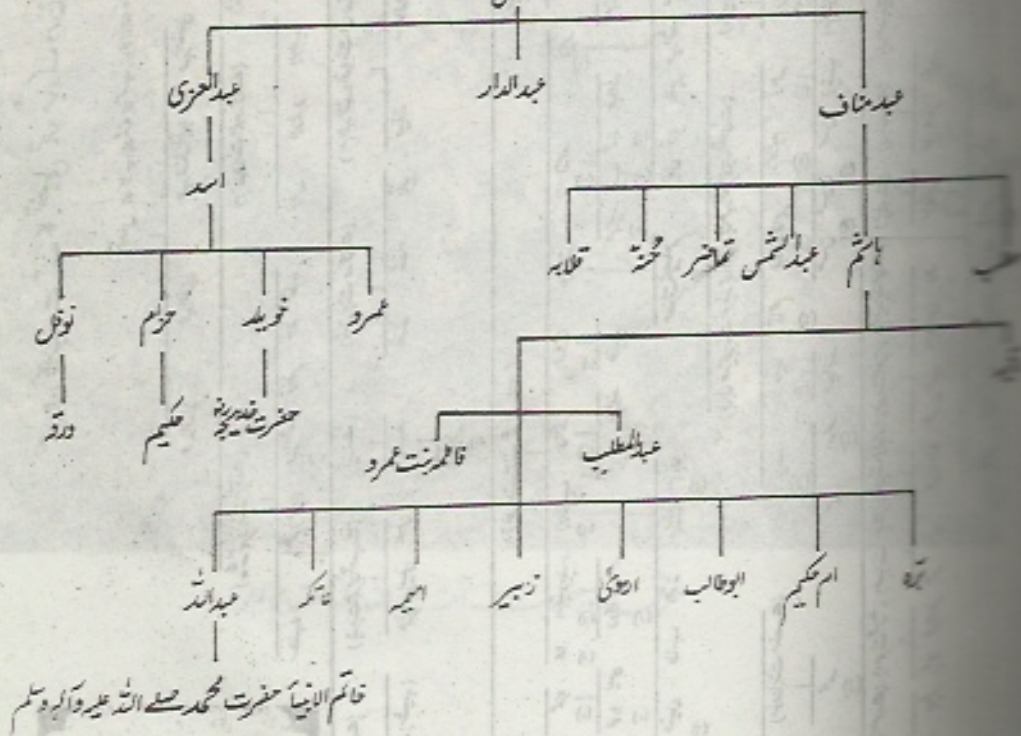 عبد مناف عبد الدار عبد العزی
اسد
ہاشم عبد الشمس تماضر حُنۃ قلابہ
عمرو خویلد حزام نوفل
حضرت خدیجہؓ حکیم ورقہ
عبدالمطلب فاطمہ بنت عمرو
برہ ام حکیم ابوطالب اروی زبیر امیمہ عاتکہ عبداللہ
خاتم الانبیاء حضرت محمد صلے اللہ علیہ وآلہ وسلم